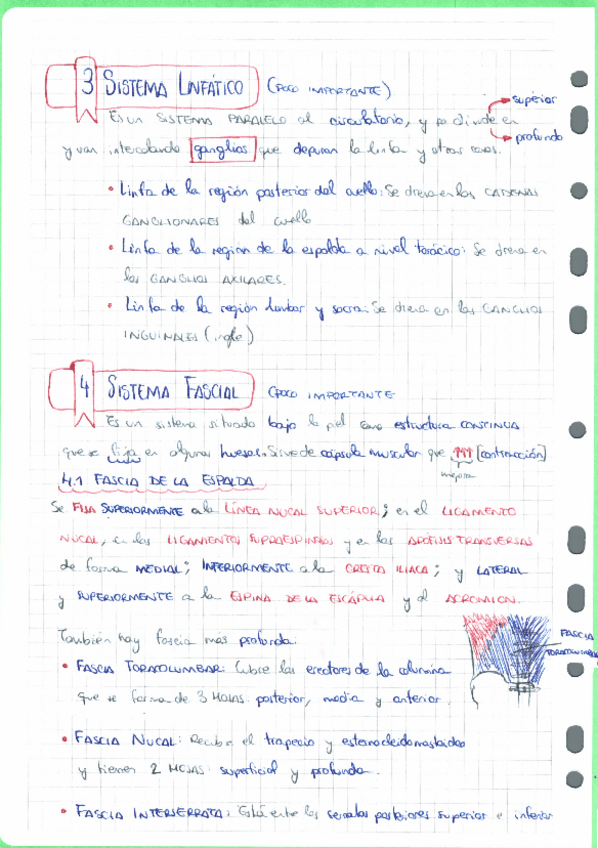 3 SISTEMA LINFÁTICO (POCO IMPORTANTE)
ES UN SISTEMA PARALELO al circulatorio, y se divide en
superior
profundo
y van intercalando ganglios que depuran la linfa y otras cosas.
• Linfa de la región posterior del cuello: Se drena en las CADENAS
GANGLIONARES del cuello
• Linfa de la region de la espalda a nivel torácico: Se drena en
los GANGLIOS AXILARES.
• Linfa de la región lumbar y sacra: Se drena en los GANGLIOS
INGUINALES (ingle)
4 SISTEMA FASCIAL (POCO IMPORTANTE
Es un sistema situado bajo la piel como estructura CONTINUA
que se fija en algunos huesos. Sirve de cápsula muscular que ↑↑↑ [contracción]
mejora
4.1 FASCIA DE LA ESPALDA
Se FIJA SUPERIORMENTE a la LÍNEA NUCAL SUPERIOR; en el LIGAMENTO
NUCAL, en los LIGAMENTOS SUPRAESPINOSOS y en las APÓFISIS TRANSVERSAS
de forma MEDIAL; INFERIORMENTE a la CRESTA ILIACA; y LATERAL
y SUPERIORMENTE a la ESPINA DE LA ESCÁPULA y al ACROMION.
También hay fascia mas profunda:
FASCIA
TORACOLUMBAR
• FASCIA TORACOLUMBAR: Cubre los erectores de la columna
que se forma de 3 HOJAS: posterior, media y anterior.
• FASCIA NUCAL: Recubre el trapecio y esternocleidomastoideo
y tienen 2 HOJAS: superficial y profunda.
• FASCIA INTERSERRATA: Está entre los serratos posteriores superior e inferior